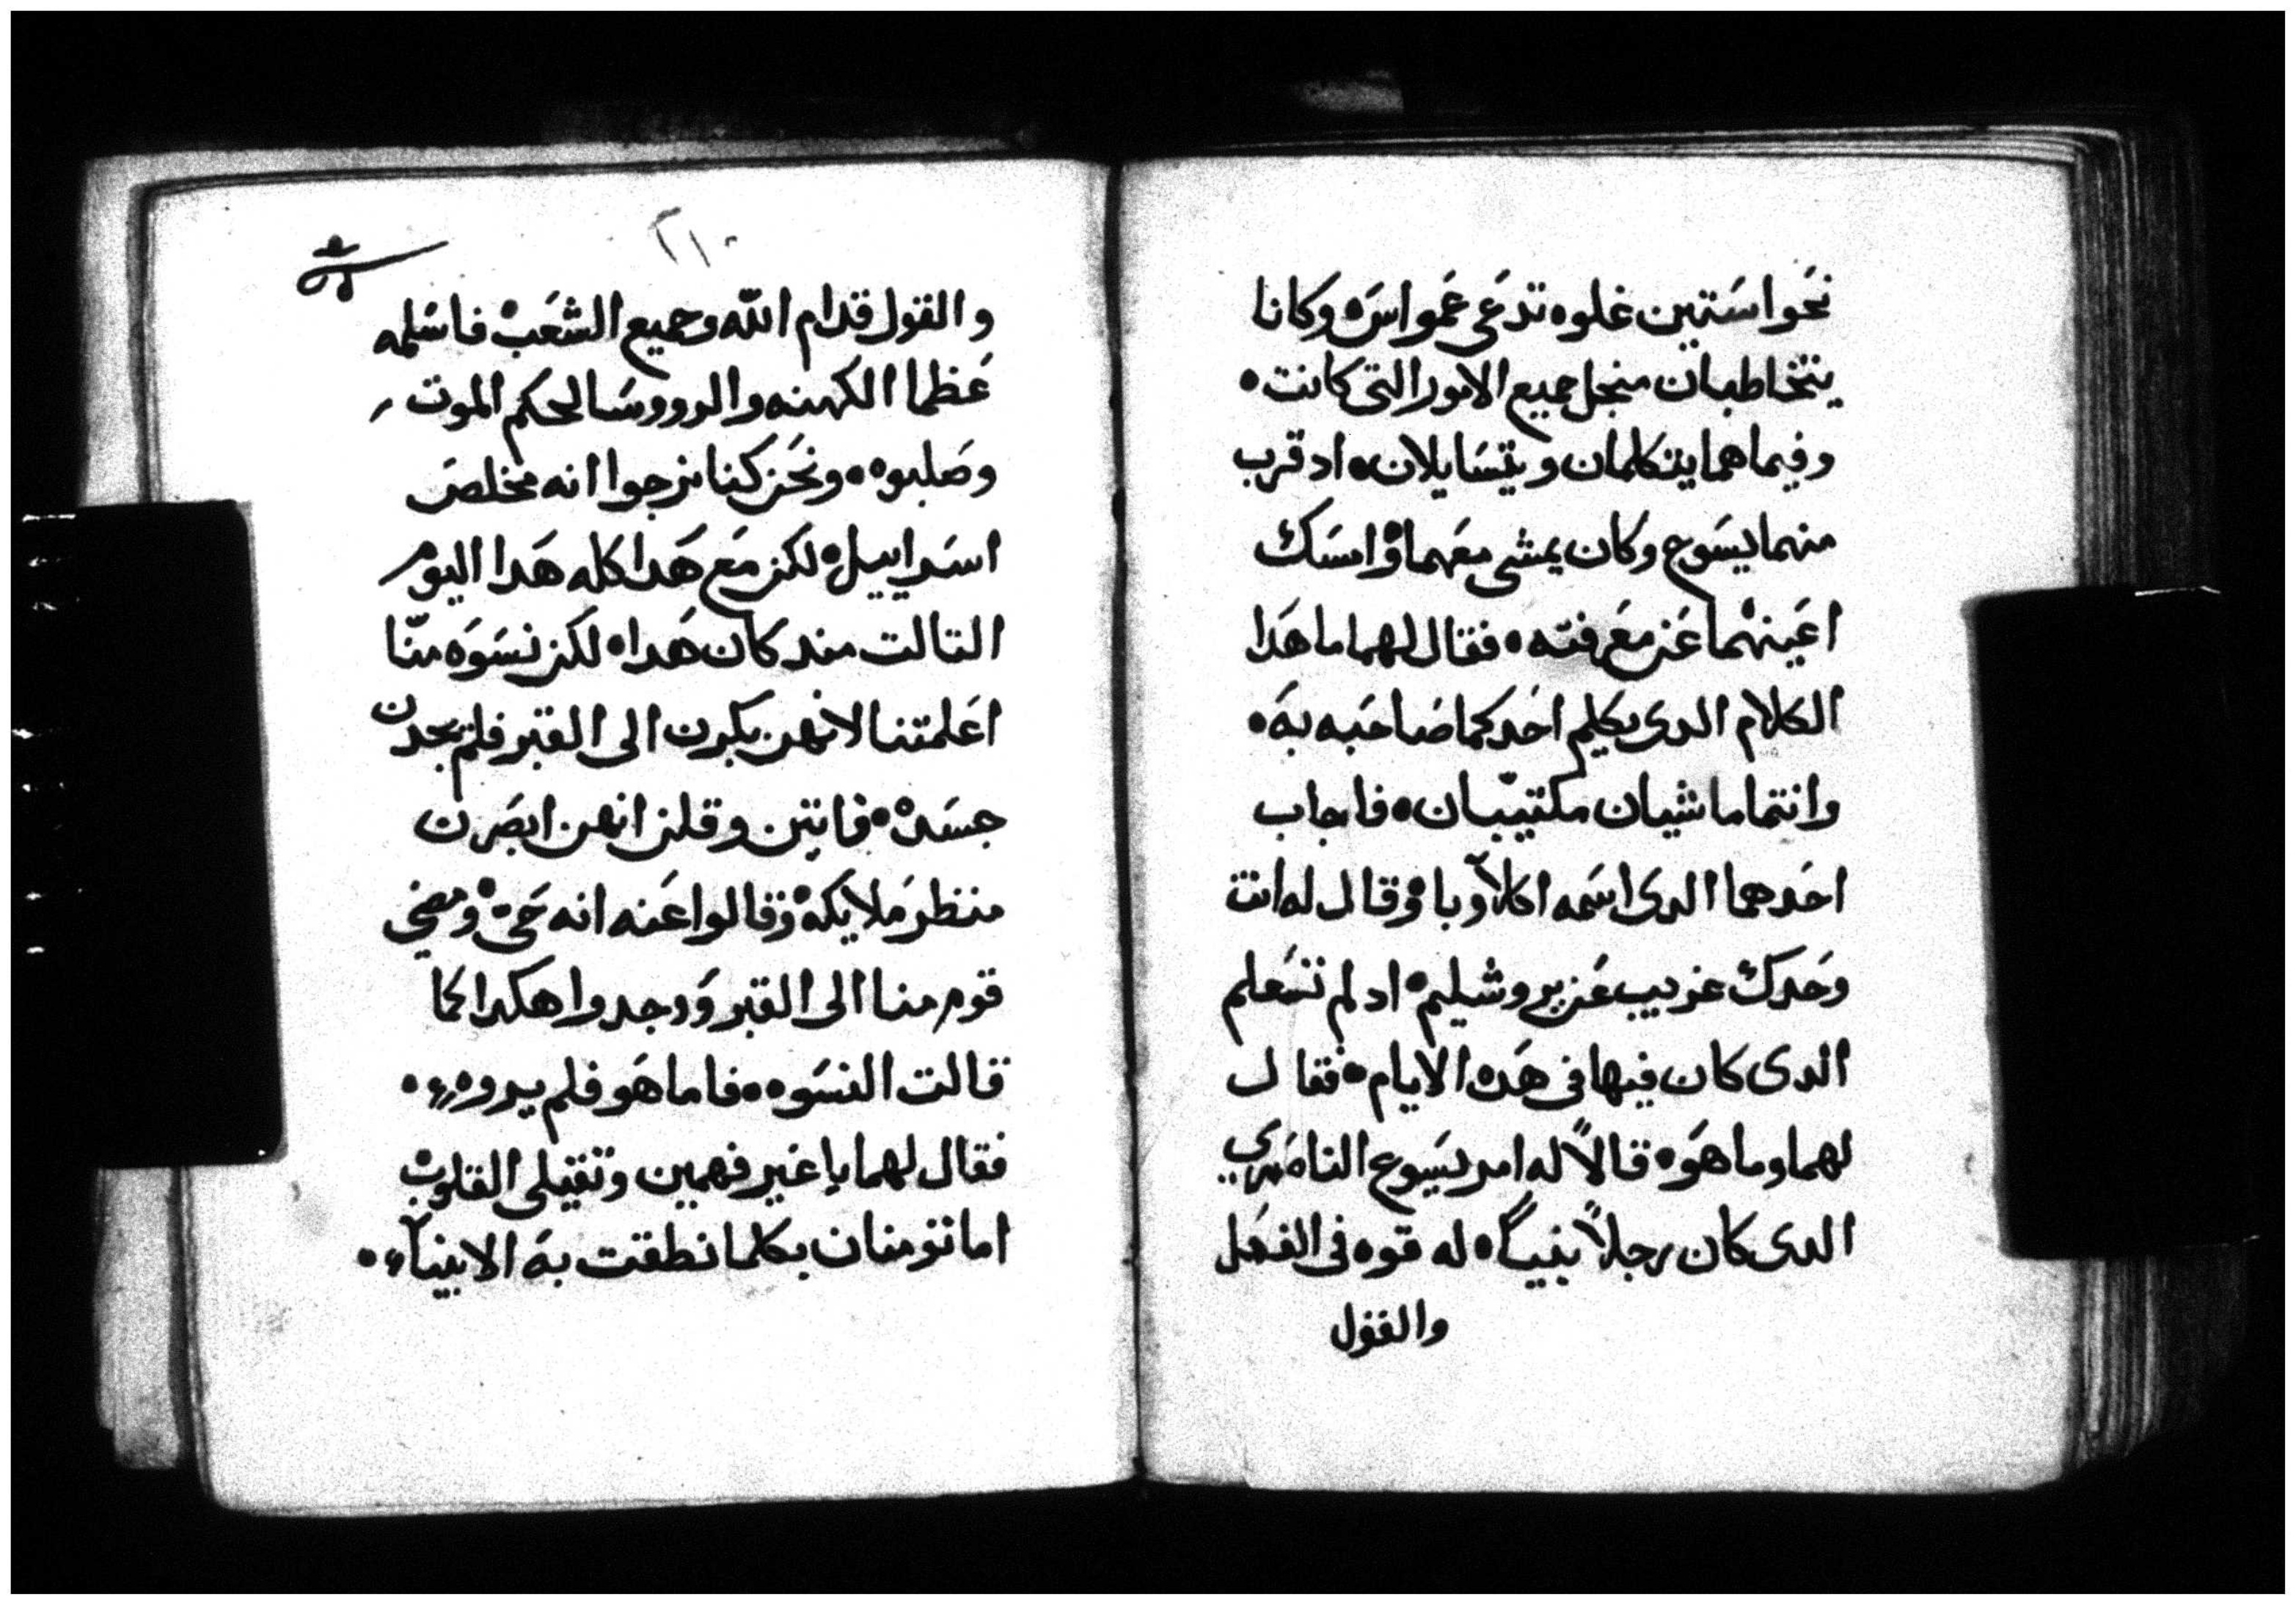 نحوا ستين غلوه تدعى عمواس وكانا
يتخاطبان منجل جميع الامور التى كانت
وفيما هما يتكلمان ويتسايلان اد قرب
منهما يسوع وكان يمشى معهما وامسك
اعينهما عن معرفته فقال لهما ما هدا
الكلام الدى يكلم احدكما صاحبه به
وانتما ماشيان مكتيبان فاجاب
احدهما الدى اسمه اكلاوبا وقال له انت
وحدك غريب عن يروشليم اد لم تتعلم
الدى كان فيها فى هده الايام فقال
لهما وما هو قالاً له امر يسوع الناصري
الدى كان رجلاً نبياً له قوه فى الفعل
والقول
٢١٠
والقول قدام الله وجميع الشعب فاسلمه
عظما الكهنه والرووسا لحكم الموت
وصلبوه ونحن كنا نرجوا انه مخلص
اسراييل لكن مع هدا كله هدا اليوم
التالت مند كان هدا لكن نسوه منّا
اعلمتنا لانهن بكرن الى القبر فلم يجدن
جسده فاتين وقلن انهن ابصرن
منظر ملايكه وقالوا عنه انه حى ومضي
قوم منا الى القبر ووجدوا هكدا كما
قالت النسوه فاما هو فلم يروه
فقال لهما يا غير فهمين وتقيلى القلوب
اما تومنان بكلما نطقت به الانبيآ